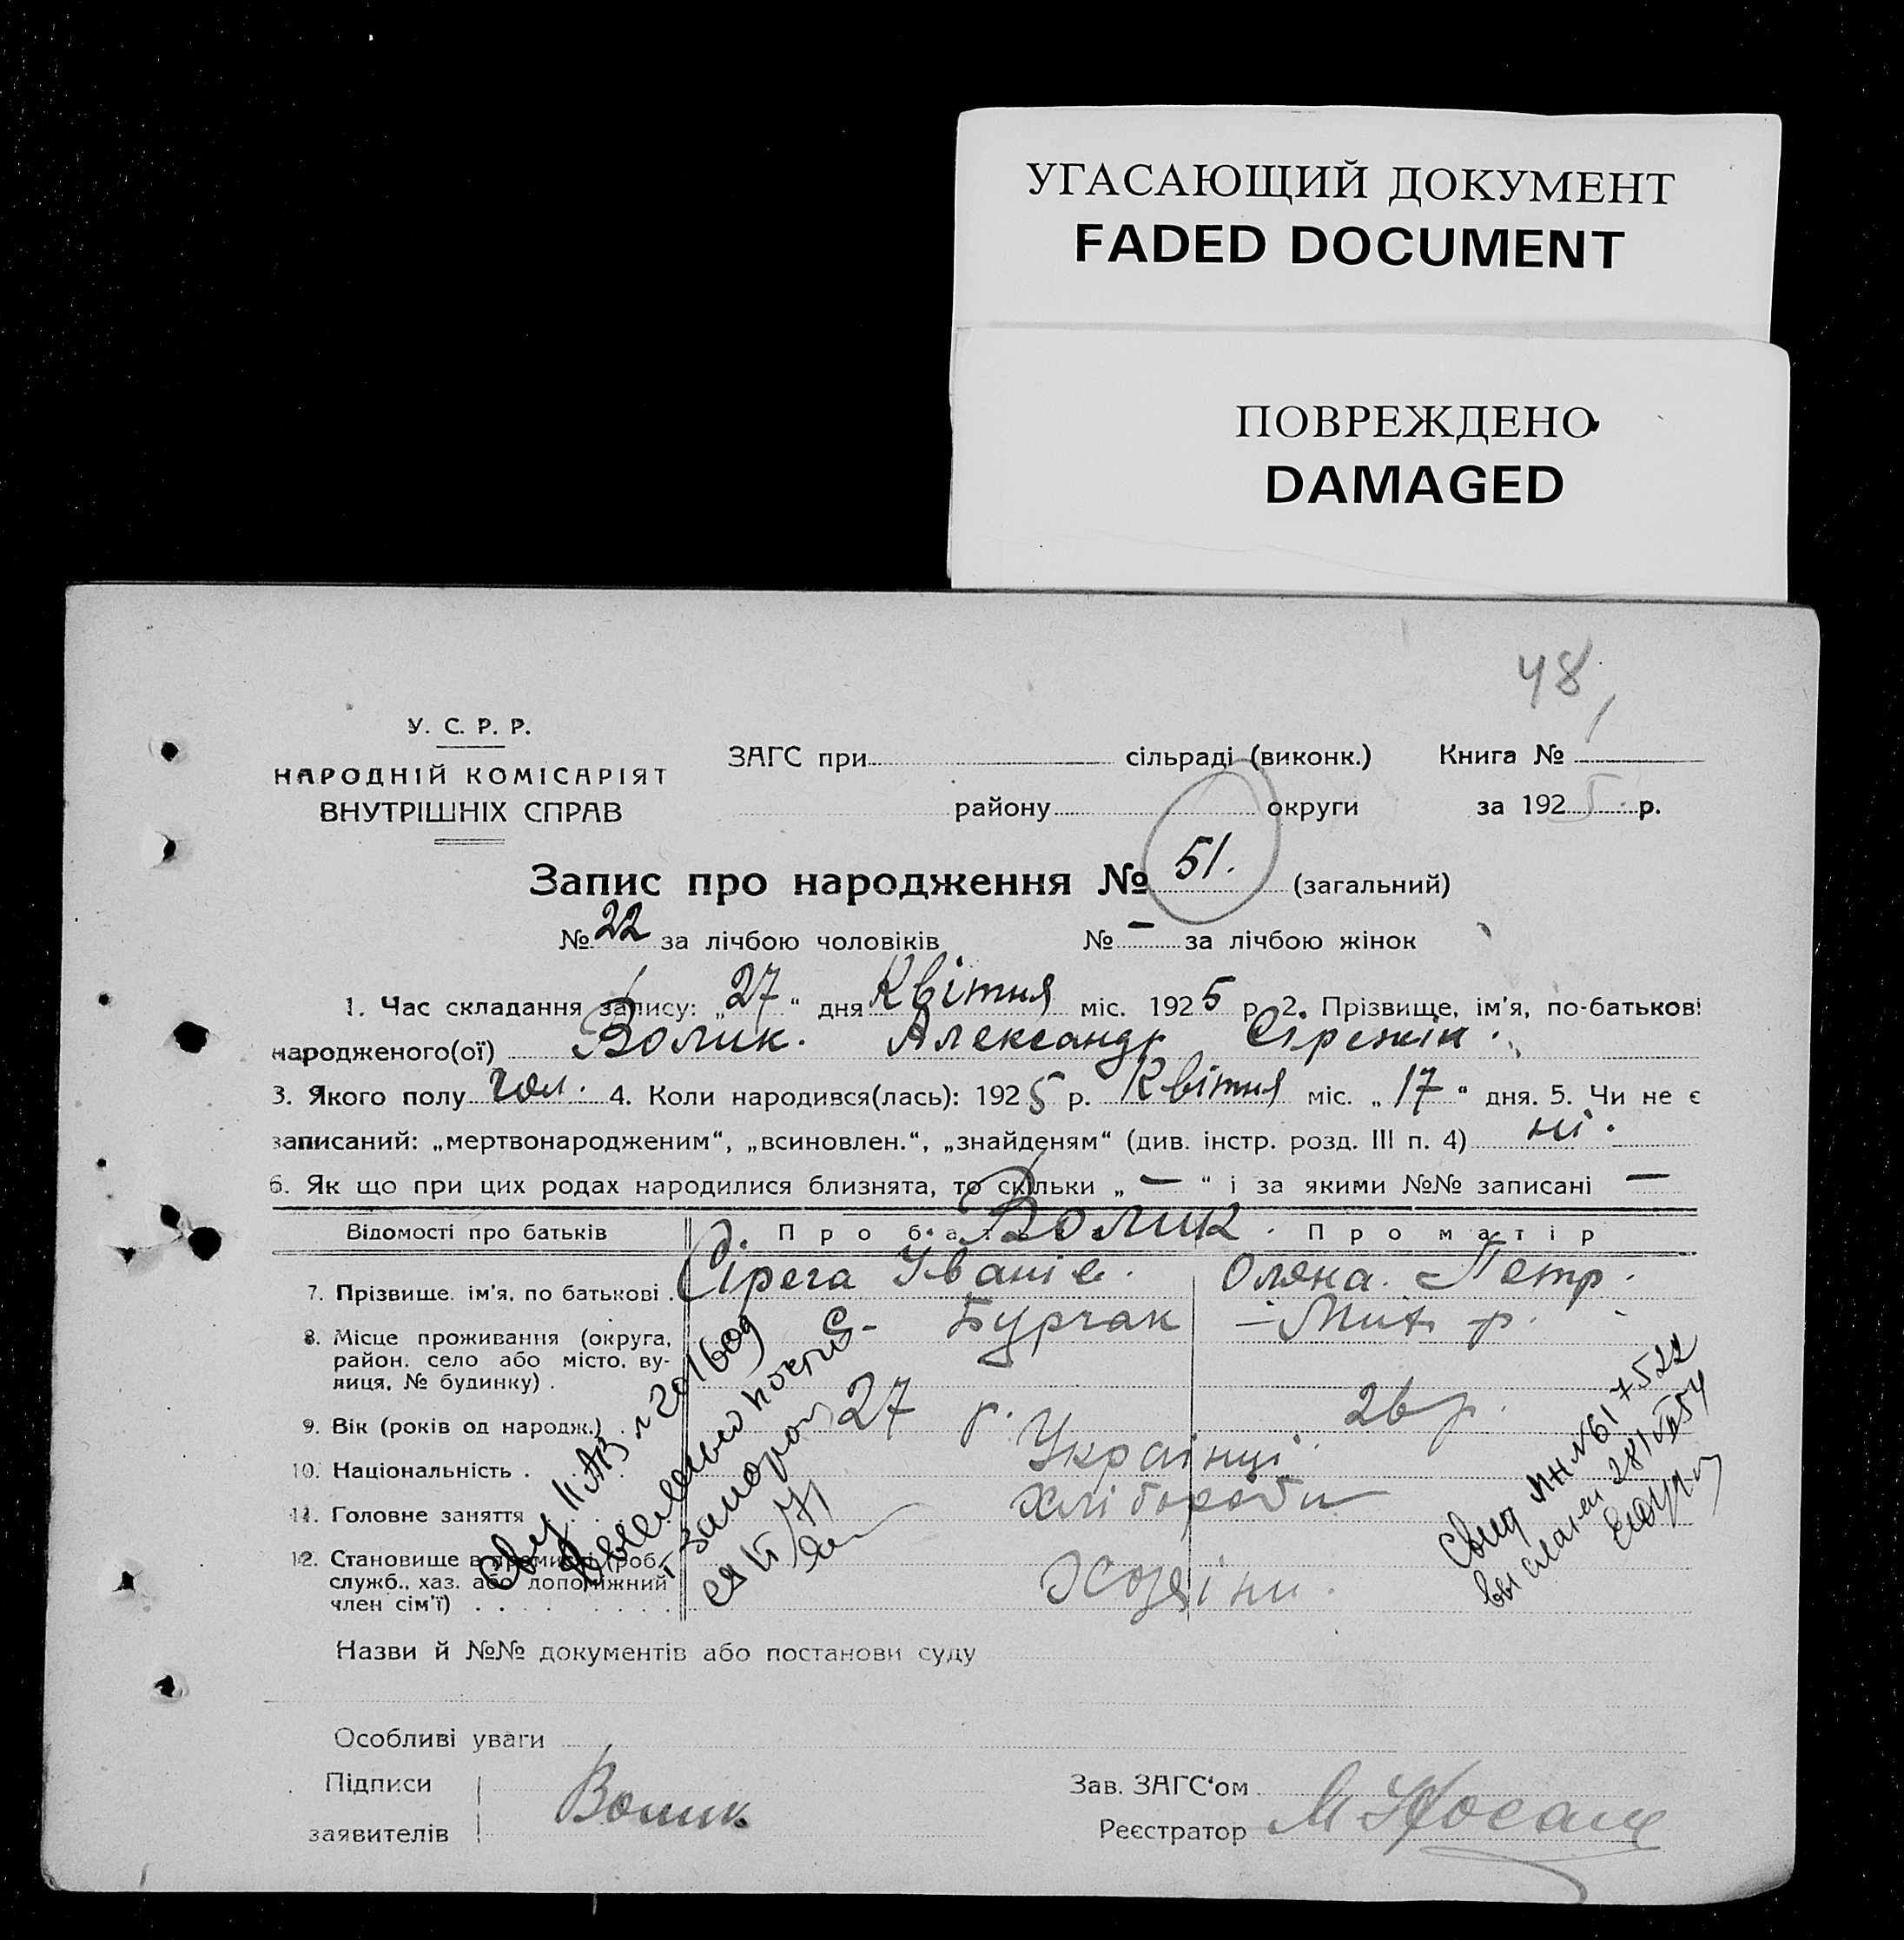 УГАСАЮЩИЙ ДОКУМЕНТ
FADED DOCUMENT
ПОВРЕЖДЕНО
DAMAGED
48
У. С. Р. Р.
НАРОДНІЙ КОМІСАРІЯТ
ВНУТРІШНІХ СПРАВ
ЗАГС при сільраді (виконк.) Книга № 1
району округи за 1925 р.
Запис про народження № 51. (загальний)
№ 22 за лічбою чоловіків № — за лічбою жінок
1. Час складання запису: „27“ дня Квітня міс. 1925 р. 2. Прізвище, ім'я, по-батькові
народженого(ої) Волик. Александр
3. Якого полу чол. 4. Коли народився(лась): 1925 р. Квітня міс. „17“ дня. 5. Чи не є
записаний: „мертвонародженим“, „всиновлен.“, „знайденям“ (див. інстр. розд. III п. 4) ні.
6. Як що при цих родах народилися близнята, то скільки „—“ і за якими №№ записані —
Відомості про батьків Про батька Волик. Про матір
7. Прізвище, ім'я, по батькові . Сірега Іваніє. Оляна. Петр.
8. Місце проживання (округа, с. Бурчак – Мих р.
район, село або місто, ву-
лиця, № будинку) .
9. Вік (років од народж.) . 27 р. 26 р.
10. Національність . Українці.
11. Головне заняття Хлібороби
12. Становище в промислі (роб.,
служб., хаз. або допоміжний Хозяіни.
член сім'ї)
Назви й №№ документів або постанови суду
Особливі уваги
Підписи Волик Зав. ЗАГС'ом
заявителів Реєстратор